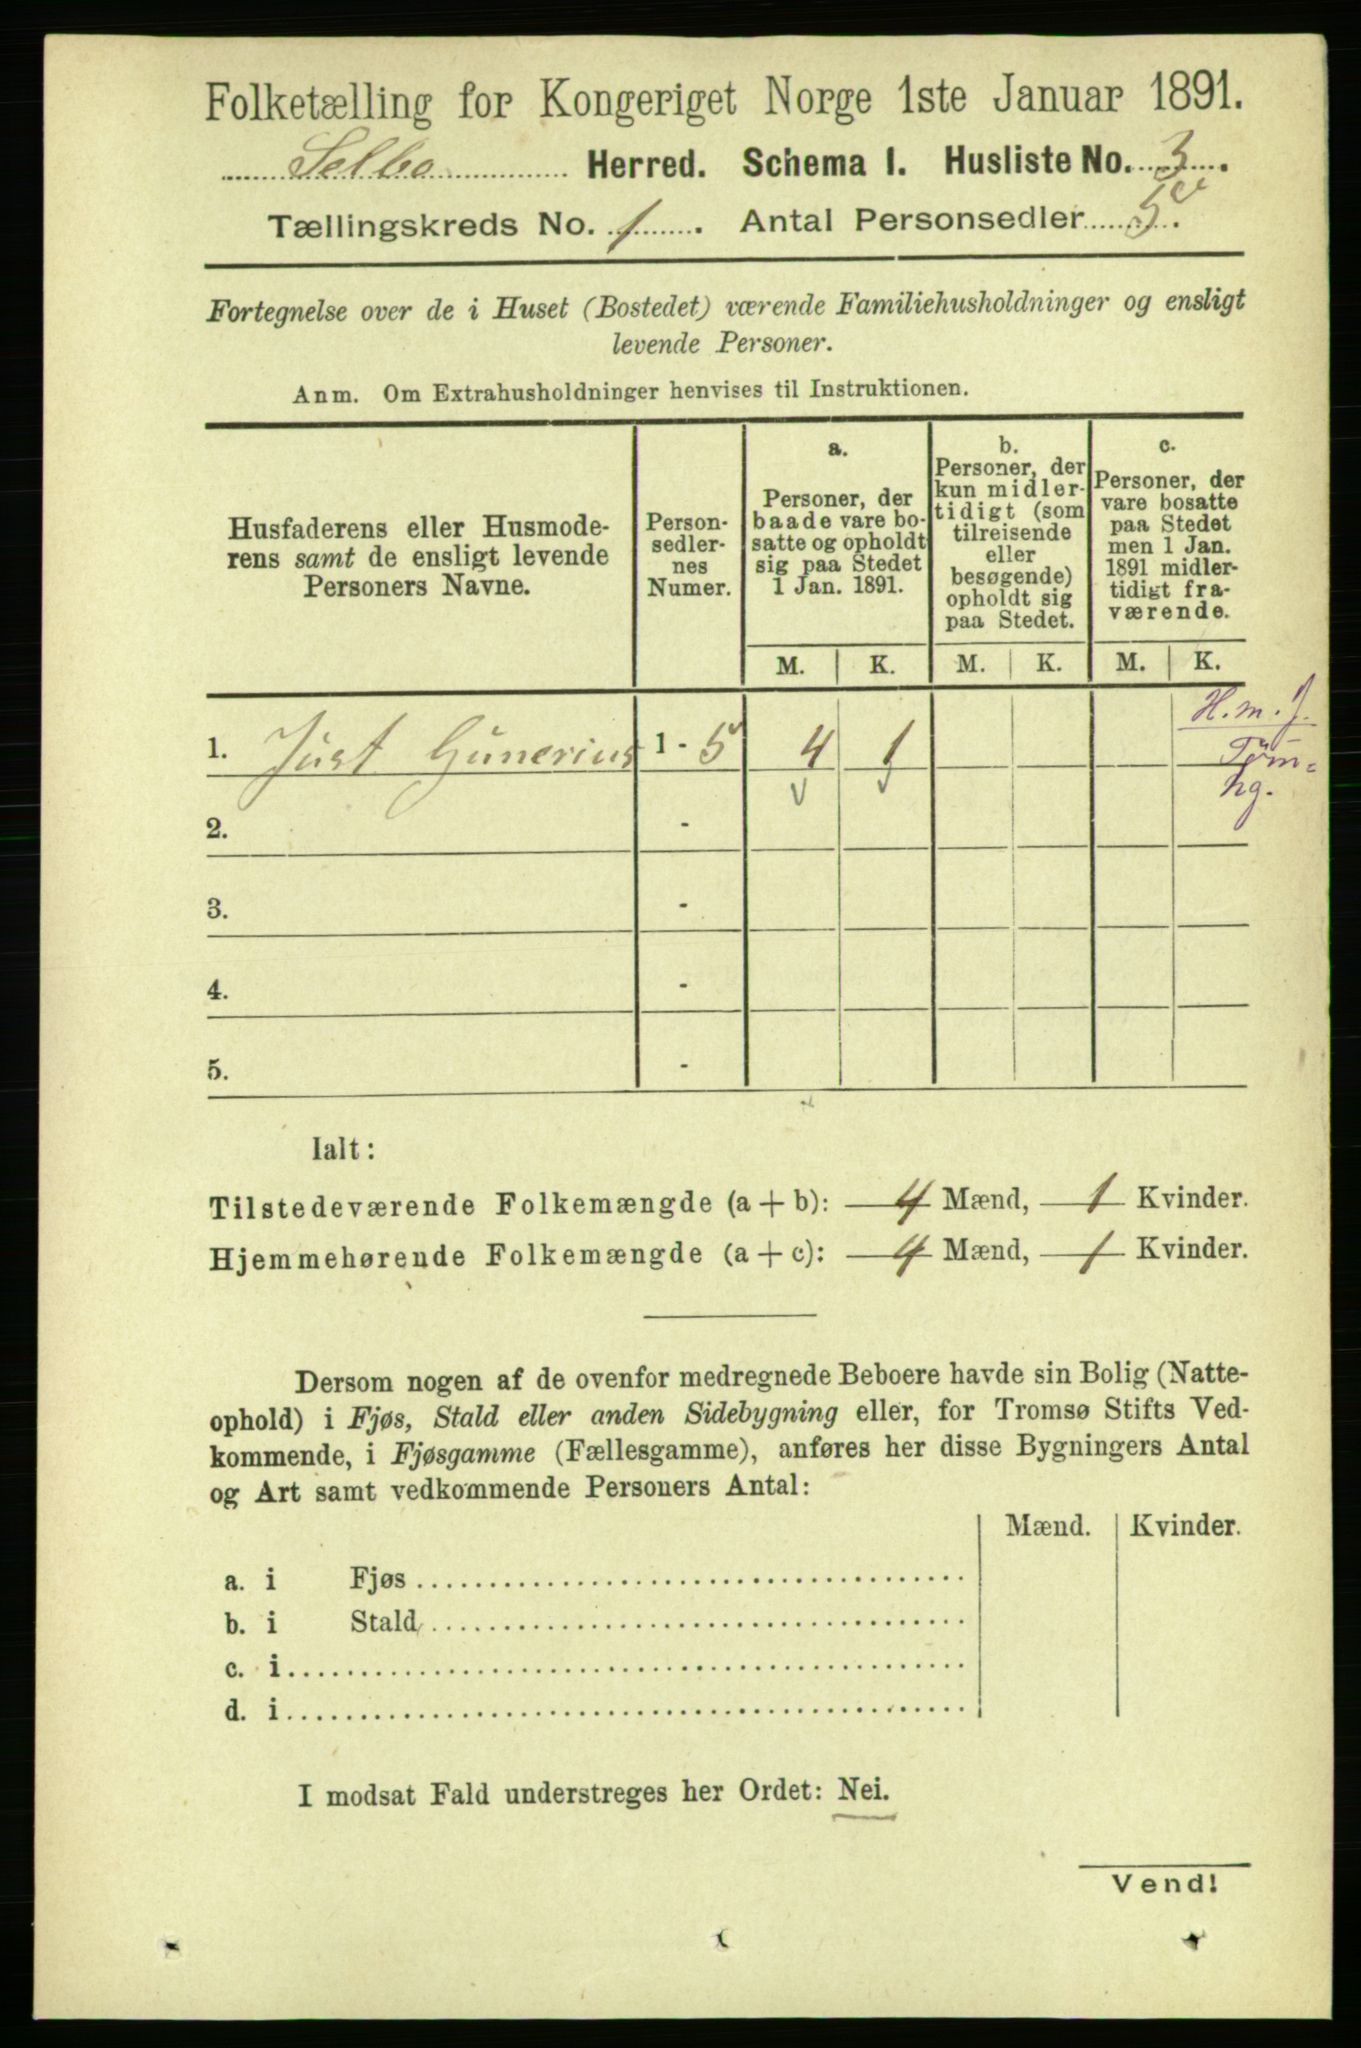 Folketælling for Kongeriget Norge 1ste Januar 1891.
Selbo Herred. Schema I. Husliste No. 3.
Tællingskreds No. 1. Antal Personsedler 5.
Fortegnelse over de i Huset (Bostedet) værende Familiehusholdninger og ensligt
levende Personer.
Anm. Om Extrahusholdninger henvises til Instruktionen.
Husfaderens eller Husmode-
rens samt de ensligt levende
Personers Navne.
Person-
sedler-
nes
Numer.
a.
Personer, der
baade vare bo-
satte og opholdt
sig paa Stedet
1 Jan. 1891.
b.
Personer, der
kun midler-
tidigt (som
tilreisende
eller
besøgende)
opholdt sig
paa Stedet.
c.
Personer, der
vare bosatte
paa Stedet
men 1 Jan.
1891 midler-
tidigt fra-
værende.
M. K. M. K. M. K.
1. Just Gunerius 1 - 5 4 1
H. m. J.
hg.
2. -
3. -
4. -
5. -
Ialt:
Tilstedeværende Folkemængde (a + b): 4 Mænd, 1 Kvinder.
Hjemmehørende Folkemængde (a + c): 4 Mænd, 1 Kvinder.
Dersom nogen af de ovenfor medregnede Beboere havde sin Bolig (Natte-
ophold) i Fjøs, Stald eller anden Sidebygning eller, for Tromsø Stifts Ved-
kommende, i Fjøsgamme (Fællesgamme), anføres her disse Bygningers Antal
og Art samt vedkommende Personers Antal:
Mænd. Kvinder.
a. i Fjøs
b. i Stald
c. i
d. i
I modsat Fald understreges her Ordet: Nei.
Vend!